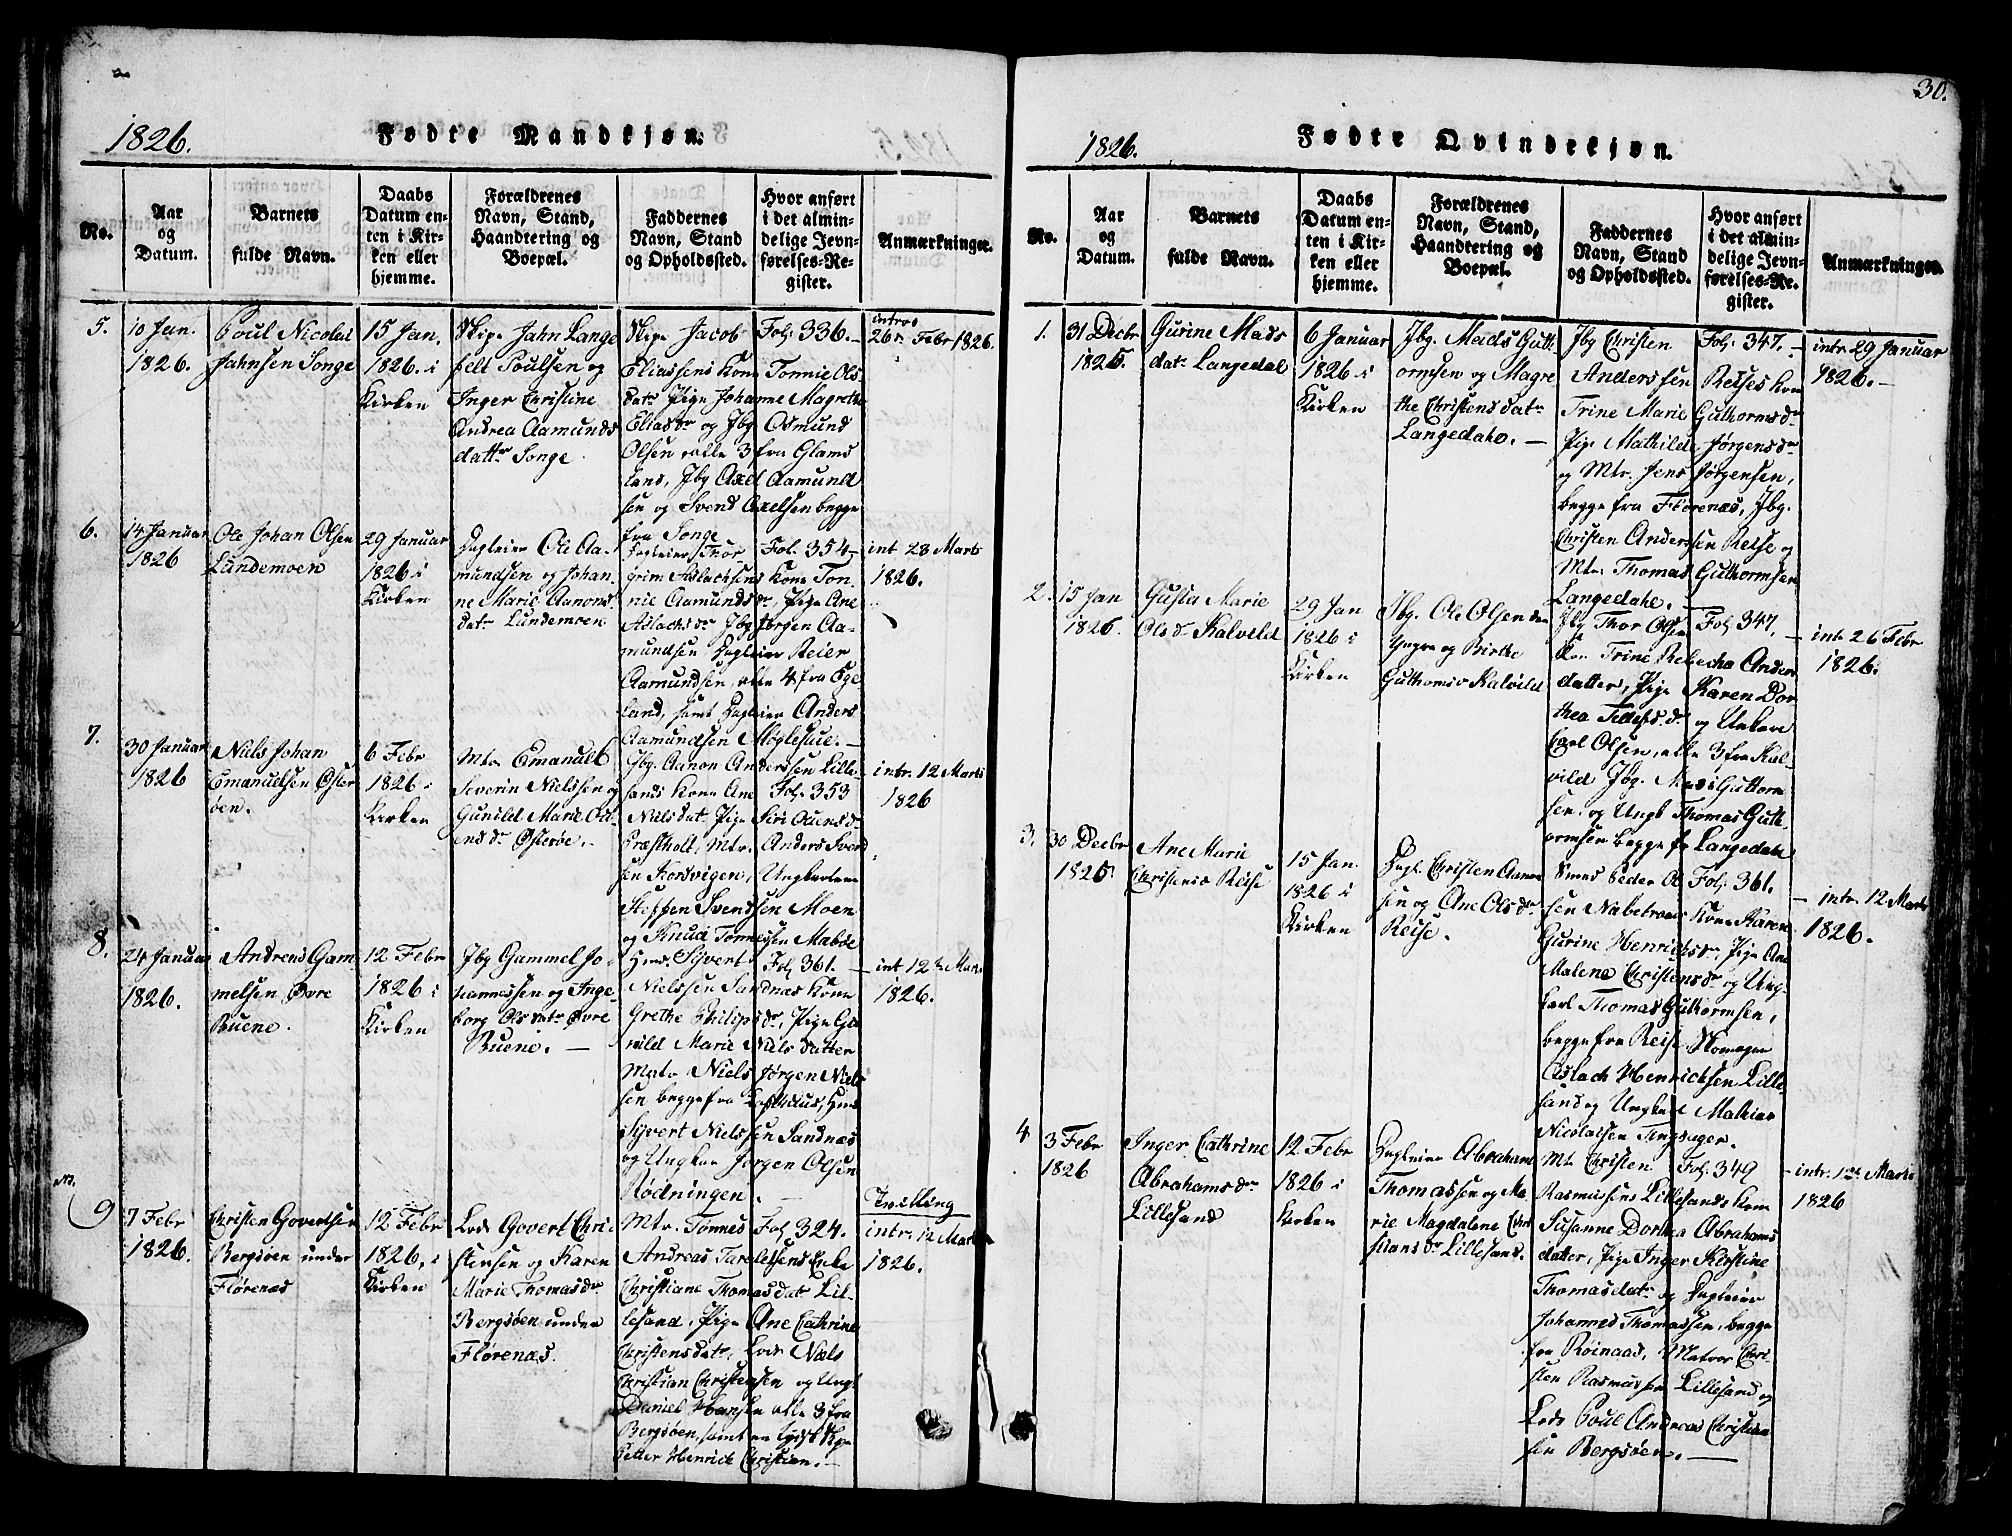 30.
1826.
Fødte Mandkjøn.
No.
Aar
og
Datum.
Barnets
fulde Navn.
Daabs
Datum en-
ten i Kir-
ken eller
hjemme.
Forældrenes
Navn, Stand,
Haandtering og
Boepæl.
Faddernes
Navn, Stand
og Opholdssted.
Hvor anført
i det almin-
delige Jevn-
førelses-Re-
gister.
Anmærkninger.
5.
10 Jan.
1826.
Poul Nicolai
Jahnsen Songe
15 Jan.
1826. i
Kirken
Skip. Jahn Lange
felt Poulsen og
Inger Christine
Andrea Aamunds
dattr Songe.
Skipr Jacob
Eliassens Kone Tonnie Ols
datr Pige Johanne Magrethe
Eliasdr og Jbg Osmund
Olsen alle 3 fra Glams
land, Jbg Axel Aamund
sen og Svend Axelsen begge
fra Songe
Fol. 336.
intros
26 Febr 1826.
6.
14 Januar
1826
Ole Johan Olsen
Lundemoen
29 Januar
1826 i
Kirken
Dagleier Ole Aa-
mundsen og Johan-
ne Marie Aanons
datr Lundemoen
Dagleier Thor
grim Aslachsens Kone Ton-
nie Aamundsdr, Pige Ane
Aslachsdr Jbg Jørgen Aa-
mundsen Dagleier Reier
Aamundsen, alle 4 fra Øge
land, samt Dagleier Anders
Aamundsen Møglestue.
Fol. 354
int 28 Marts
1826.
7.
30 Januar
1826
Niels Johan
Emanuelsen Øster
øen.
6 Febr
1826 i
Kirken
Mtr Emanuel
Severin Nielssen og
Gunild Marie Ou-
ensdr Østerøe.
Jbg. Aanon Anderssen Lille
sands Kone Ane
Nielsdat. Pige Siri Ouensdr
Præstholt, Mtr. Anders Svend
sen Korsvigen, Ungkarlene
Steffen Svendsen Moen
og Knud Tønnessen Mabøe
Fol. 353
intr. 12 Marts
1826
8.
24 Januar
1826.
Andreas Gam
melsen Øvre
Buene.
12 Febr
1826 i
Kirken
Jbg Gammel Jo-
hannessen og Inge-
borg Olsdatr Øvre
Buene.
Hmd. Sÿvert
Nielssen Sandnæs Kone
Grethe Philipsdr, Pige Gu
nild Marie Nielsdatter
Matr Niels Jørgen Niels
sen begge fra
Sÿvert Nielssen Sandnæs
og Ungkar Jørgen Olsen
Rødningen.
Fol. 361.
int 12te Mar.
1826.
9
7 Febr
1826.
Christen Govertsen
Bergsøen under
Flørenæs
12 Febr
1826. i
Kirken
Lods Govert Chri
stensen og Karen
Marie Thomasdr
Bergsøen under
Flørenæs.
Mtr. Tønnes
Andreas Tarelelsens Enke
Christiane Thomasdatr Lil-
lesand, Pige Ane Cathrine
Christensdatr, Lods Niels
Christian Christensen og Ungk
Daniel Hansen alle 3 fra
Bergsøen, samt en tydsk Skpr
Petter Henrick Christian.
Fol. 324.
Tvilling
intr. 12 Marts
1826.
1826.
Fødte Qvindekjøn.
No.
Aar
og
Datum.
Barnets
fulde Navn.
Daabs
Datum en-
ten i Kir-
ken eller
hjemme.
Forældrenes
Navn, Stand,
Haandtering og
Boepæl.
Faddernes
Navn, Stand
og Opholdssted.
Hvor anført
i det almin-
delige Jevn-
førelses-Re-
gister.
Anmærkninger.
1.
31 Decbr
1825.
Gurine Mads
datr Langedal
6 Januar
1826 i
Kirken
Jbg. Mads Gutt-
ormsen og Magre
the Christensdatr
Langedahe.
Jbg Christen
Anderssen Reises Kone
Trine Marie Guthormsdr
Pige Mathilde Jørgensdr
og Mtr. Jens Jørgensen,
begge fra Flørenæs, Jbg.
Christen Andersen Reise og
Mtr. Thomas Guthormsen
Langedahe.
Fol. 347.
intr 29 Januar
1826.
2.
15 Jan
1826.
Gusta Marie
Olsdr Kalvild
29 Jan
1826 i
Kirken
Jbg. Ole Olsen den
Yngre og Birthe
Guthormsdr Kalvild
Jbg Thor Olsen
Kone Trine Rebecha Anders
datter, Pige Karen Dor
thea Tellefsdr og Unkarl
Carl Olsen, alle 3 fra Kal-
vild Jbg. Mads Guttorm
sen og Ungk Thomas Gutt-
ormsen begge fr Langedahl
Fol. 347.
intr 26 Febr
1826.
3.
30 Decbr
1825
Ane Marie
Christensdr Reise
15 Jan.
1826 i
Kirken
Dagl. Christen Aanon
sen og Ane Olsdr
Reise.
Smed Peder Ol
sen Nabetroens Kone Karen
Gurine Henrichsdr, Pige Ane
Malene Christensdr og Ung-
karl Thomas Guthormsen,
begge fra Reise Skomager
Aslach Henrichsen Lille
sand og Ungkarl Mathias
Nicolaisen Tingsager.
Fol. 361.
intr. 12 Marts
1826.
4
3 Febr
1826
Inger Cathrine
Abrahamsdr
Lillesand
12 Febr
1826 i
Kirken
Dagleier Abraham
Thomassen og Ma-
rie Magdalene Chri
stiansdr Lillesand.
Mt Christen
Rasmussens Lillesands Kone
Susanne Dorthea Abrahams
datter, Pige Inger Kirstine
Thomasdatr og Dagleier
Johannes Thomassen, begge
fra Røinaas, Matros Chri-
sten Rasmussen Lillesand og
Lods Poul Andreas Christian
sen Bergsøen.
Fol. 349
intr. 1ste Marts
1826